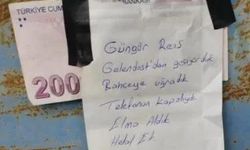 TÜRKİYE CUM
BANKASI
200
Güngör Reis
Gelendost'dan geçiyorduk
Bahçeye uğradık
Telefonun Kapalıydı
Elma Aldık
Helal Et